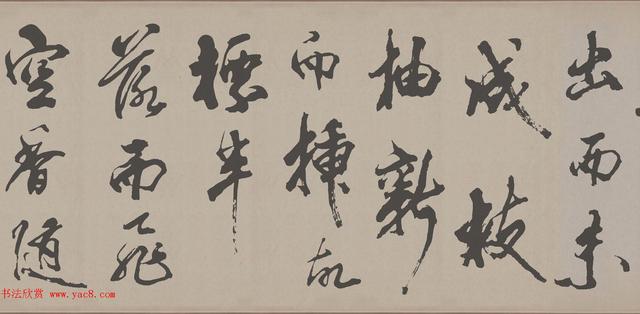 出而未
成枝
抽新
而插故
標半
落而飛
空香隨
书法欣赏 www.yac8.com